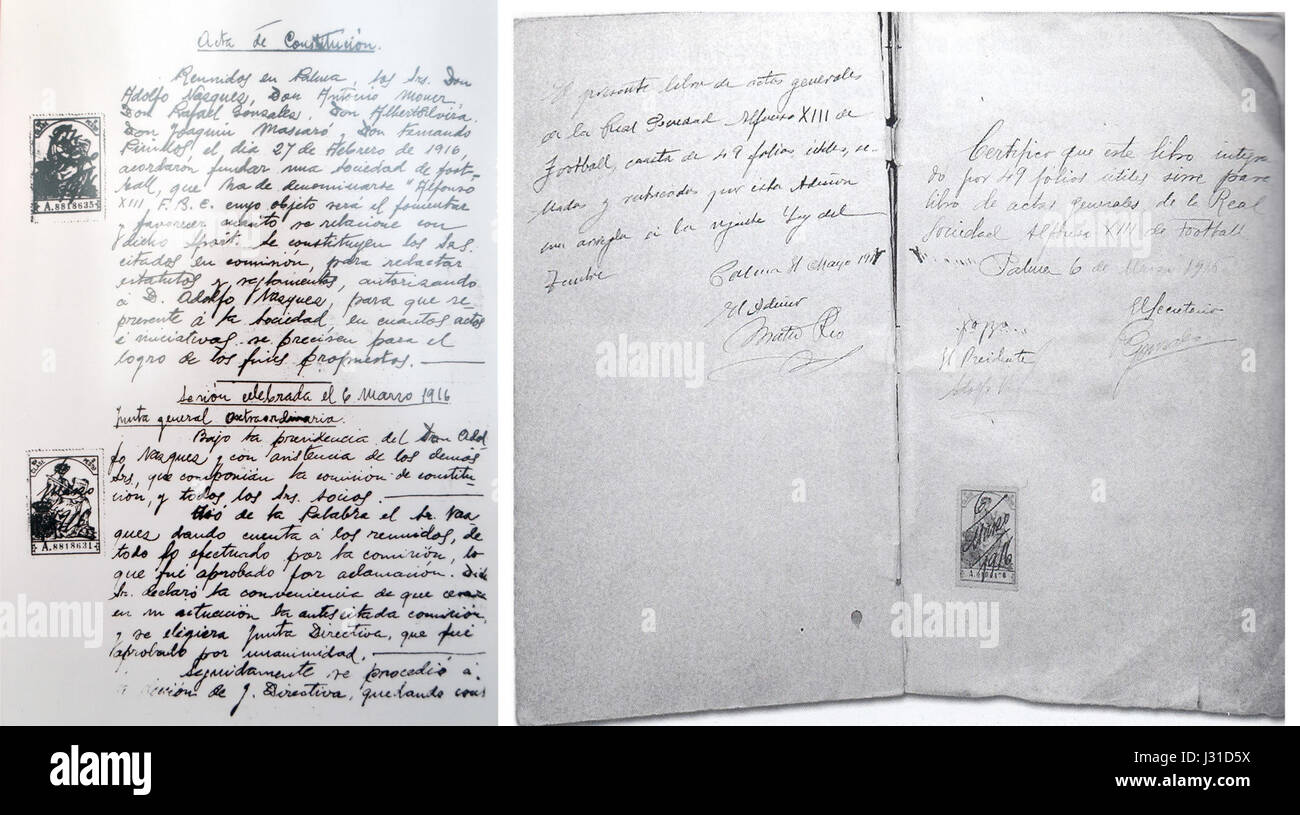 Acta de Constitución.
Reunidos en Palma, los Srs. Don
Adolfo Vasques, Don Antonio Moner,
Don Rafael Gonzales, Don Alberto Elvira,
Don Joaquin Mascaró y Don Fernando
el dia 27 de Febrero de 1916
acordaron fundar una sociedad de foot-
ball, que ha de denominarse "Alfonso
XIII F.B.C. cuyo objeto será el fomentar
y favorecer cuanto se relacione con
dicho sport. Se constituyen los Srs.
citados en comisión, para redactar
estatutos y reglamentos, autorizando
á D. Adolfo Vasques, para que re-
presente á la sociedad, en cuantos actos
é iniciativas se precisen para el
logro de los fines propuestos.
A.8818635
Sesión celebrada el 6 Marzo 1916
Junta general extraordinaria.
Bajo la presidencia del Don Adol-
fo Vasques, y con asistencia de los demas
Srs, que componian la comision de constitu-
cion, y todos los Srs. socios.
Usó de la Palabra el Sr. Vas
ques dando cuenta á los reunidos, de
todo lo efectuado por la comisión, lo
que fué aprobado por aclamación.
Sr. declaró la conveniencia de que
en su actuación la antescitada comisión,
y se eligiera Junta Directiva, que fué
aprobado por unanimidad.
Seguidamente se procedió á
la elección de J. Directiva, quedando cons
A.8818631
El presente libro de actas generales
de la Real Sociedad Alfonso XIII de
Football, consta de 49 folios útiles, se-
llados y rubricados por esta
con arreglo á la vigente Ley del
Timbre
Palma 31 Mayo
El
Mateo
Certifico que este libro integra-
do por 49 folios útiles sirve para
libro de actas generales de la Real
Sociedad Alfonso XIII de Football
Palma 6 de Marzo 1916
El Secretario
El Presidente
6
Marzo
1916
alamy stock photo
alamy
www.alamy.com
Image ID: J31D5X